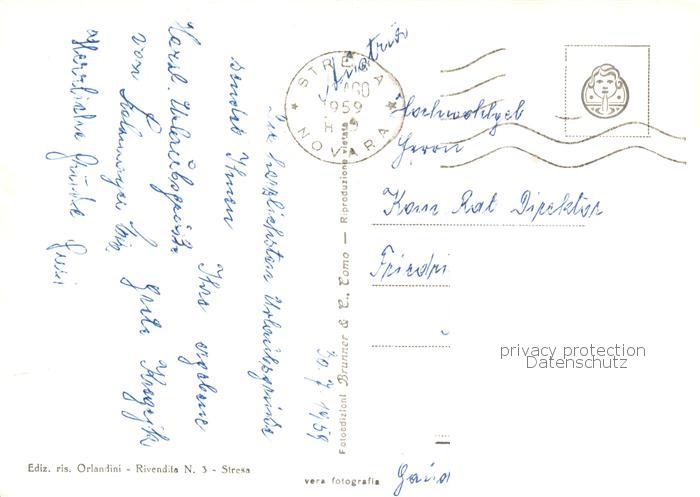 30. 7. 1959
Die herzlichsten Urlaubsgrüße
sendet Ihnen
Ihre ergebene
Grete
Herzl. Urlaubsgrüße
von
Herzliche Grüße
STRESA
NOVARA
1959
Austria
Hochwohlgeb
Herrn
Kom Rat Direktor
Friedri
privacy protection
Datenschutz
Fotoedizioni Brunner & C., Como — Riproduzione vietata
Ediz. ris. Orlandini - Rivendita N. 3 - Stresa
vera fotografia